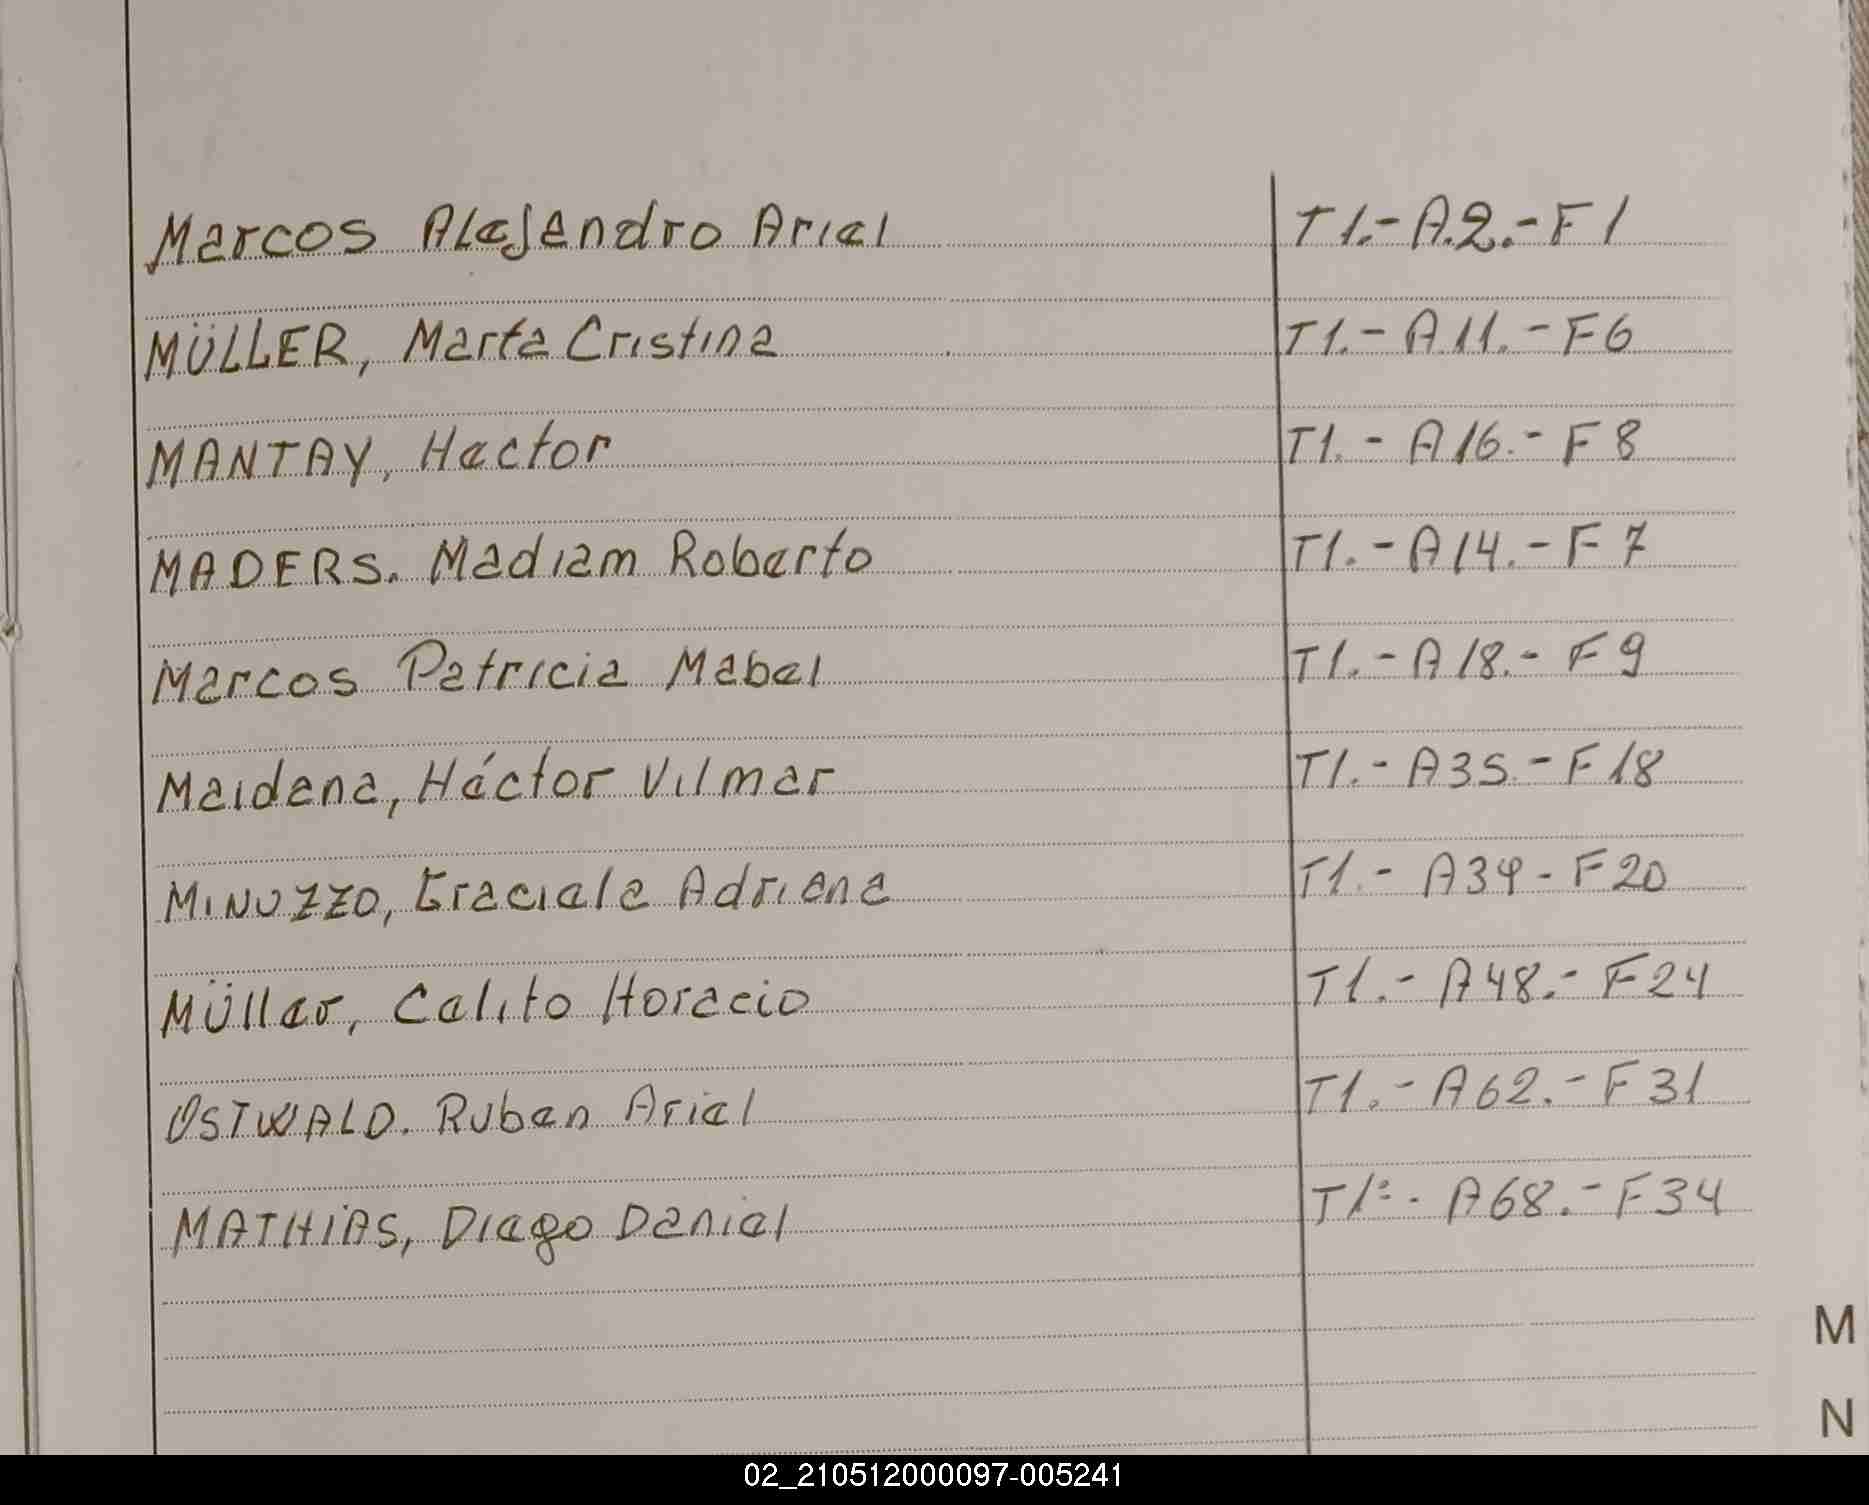 Marcos Alejandro Ariel T1.-A.2.-F1
MÜLLER, Marta Cristina T1.-A.11.-F6
MANTAY, Hector T1.-A16.-F8
MADERS. Madiam Roberto T1.-A14.-F7
Marcos Patricia Mabel T1.-A18.-F9
Maidana, Héctor Vilmar T1.-A35.-F18
MINUZZO, Graciela Adriana T1.-A39-F20
Müller, Calito Horacio T1.-A48.-F24
OSTWALD. Ruben Ariel T1.-A62.-F31
MATHiAS, Diego Daniel T1:-A68.-F34
M
N
02_210512000097-005241